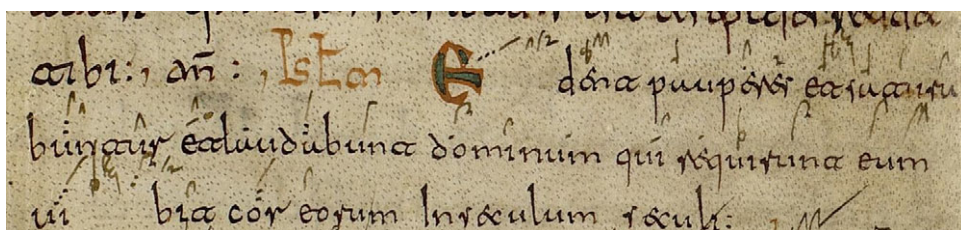 tibi:, añ :,
E dent pauperes et satura
buntur et laudabunt dominum qui requirunt eum
ui bit cor eorum In seculum seculi: